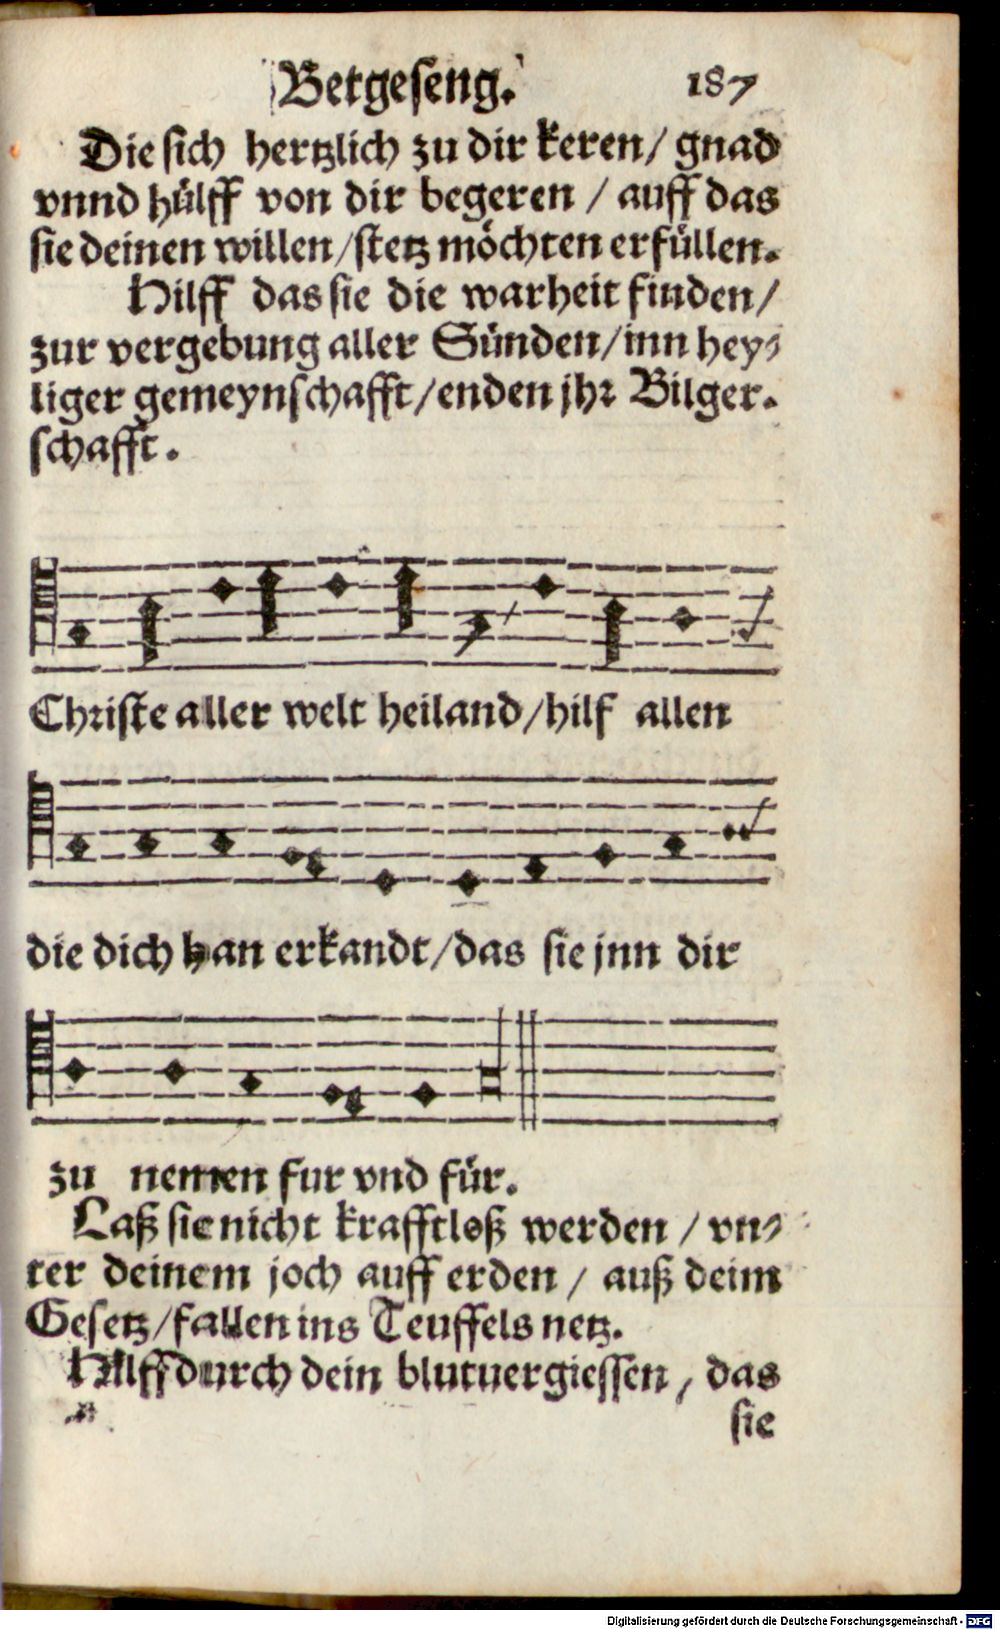 Betgeseng. 187
Die sich hertzlich zu dir keren/ gnad
vnnd hülff von dir begeren / auff das
sie deinen willen/stetz möchten erfüllen.
Hilff das sie die warheit finden/
zur vergebung aller Sünden/inn hey⸗
liger gemeynschafft/enden jhr Bilger.
schafft.
Christe aller welt heiland/hilf allen
die dich han erkandt/das sie jnn dir
zu nemen fur vnd für.
Laß sie nicht krafftloß werden / vn⸗
ter deinem joch auff erden / auß deim
Gesetz/fallen ins Teuffels netz.
Hilff durch dein blutuergiessen, das
sie
Digitalisierung gefördert durch die Deutsche Forschungsgemeinschaft - DFG